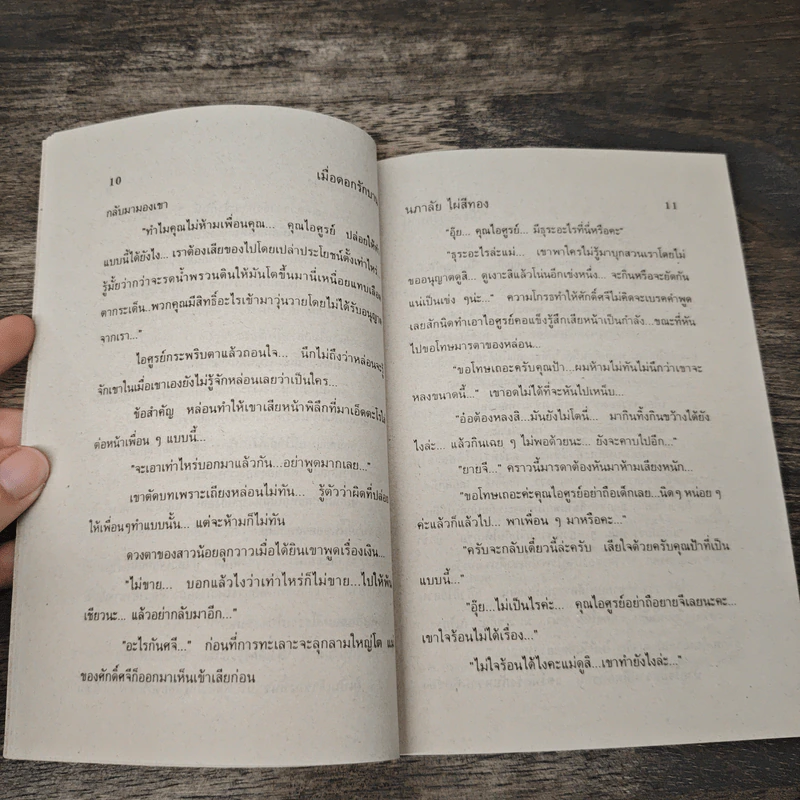 10
เมื่อดอกรักบาน
กลับมามองเขา
"ทำไมคุณไม่ห้ามเพื่อนคุณ... คุณไอศูรย์ ปล่อยให้ทำ
แบบนี้ได้ยังไง... เราต้องเสียของไปโดยเปล่าประโยชน์ตั้งเท่าไหร่
รู้มั้ยว่ากว่าจะรดน้ำพรวนดินให้มันโตขึ้นมานี่เหนื่อยแทบเลือด
ตากระเด็น..พวกคุณมีสิทธิ์อะไรเข้ามาวุ่นวายโดยไม่ได้รับอนุญาต
จากเรา..."
ไอศูรย์กระพริบตาแล้วถอนใจ... นึกไม่ถึงว่าหล่อนจะรู้
จักเขาในเมื่อเขาเองยังไม่รู้จักหล่อนเลยว่าเป็นใคร...
ข้อสำคัญ หล่อนทำให้เขาเสียหน้าพิลึกที่มาเอ็ดตะโร
ต่อหน้าเพื่อน ๆ แบบนี้...
"จะเอาเท่าไหร่บอกมาแล้วกัน...อย่าพูดมากเลย..."
เขาตัดบทเพราะเถียงหล่อนไม่ทัน รู้ตัวว่าผิดที่ปล่อย
ให้เพื่อนๆทำแบบนั้น... แต่จะห้ามก็ไม่ทัน
ดวงตาของสาวน้อยลุกวาวเมื่อได้ยินเขาพูดเรื่องเงิน...
"ไม่ขาย... บอกแล้วไงว่าเท่าไหร่ก็ไม่ขาย...ไปให้พ้น
เชียวนะ... แล้วอย่ากลับมาอีก..."
"อะไรกันศจี..." ก่อนที่การทะเลาะจะลุกลามใหญ่โต แม่
ของศักดิ์ศจีก็ออกมาเห็นเข้าเสียก่อน
นภาลัย ไผ่สีทอง
11
"อุ๊ย... คุณไอศูรย์... มีธุระอะไรที่นี่หรือคะ"
"ธุระอะไรล่ะแม่... เขาพาใครไม่รู้มาบุกสวนเราโดยไม่
ขออนุญาตดูสิ... ดูเงาะสีแล้วโน่นอีกเข่งหนึ่ง... จะกินหรือจะยัดกัน
แน่เป็นเข่ง ๆน่ะ..." ความโกรธทำให้ศักดิ์ศจีไม่คิดจะเบรคคำพูด
เลยสักนิดทำเอาไอศูรย์คอแข็งรู้สึกเสียหน้าเป็นกำลัง...ขณะที่หัน
ไปขอโทษมารดาของหล่อน...
"ขอโทษเถอะครับคุณป้า...ผมห้ามไม่ทันไม่นึกว่าเขาจะ
หลงขนาดนี้..." เขาอดไม่ได้ที่จะหันไปเหน็บ...
"อ๋อต้องหลงสิ...มันยังไม่โตนี่... มากินทิ้งกินขว้างได้ยัง
ไงล่ะ... แล้วกินเฉย ๆ ไม่พอด้วยนะ... ยังจะคาบไปอีก..."
"ยายจี..." คราวนี้มารดาต้องหันมาห้ามเสียงหนัก...
"ขอโทษเถอะค่ะคุณไอศูรย์อย่าถือเด็กเลย...นิดๆ หน่อย ๆ
ค่ะแล้วก็แล้วไป... พาเพื่อน ๆ มาหรือคะ..."
"ครับจะกลับเดี๋ยวนี้ล่ะครับ เสียใจด้วยครับคุณป้าที่เป็น
แบบนี้..."
"อุ๊ย...ไม่เป็นไรค่ะ... คุณไอศูรย์อย่าถือยายจีเลยนะคะ...
เขาใจร้อนไม่ได้เรื่อง..."
"ไม่ใจร้อนได้ไงคะแม่ดูสิ...เขาทำยังไงล่ะ..."